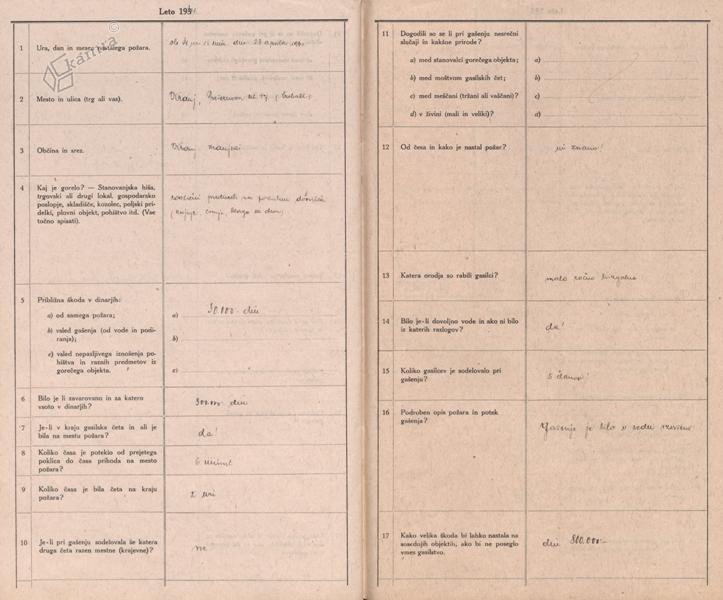 Leto 193
kamra
1 Ura, dan in mesec nastalega požara.
2 Mesto in ulica (trg ali vas).
Kranj,
3 Občina in srez.
Kranj
4 Kaj je gorelo? — Stanovanjska hiša,
trgovski ali drugi lokal, gospodarsko
poslopje, skladišče, kozolec, poljski pri-
delki, plovni objekt, pohištvo itd. (Vse
točno opisati).
5 Približna škoda v dinarjih:
a) od samega požara;
a) 30.000 din
b) vsled gašenja (od vode in podi-
ranja);
b)
c) vsled nepazljivega iznošenja po-
hištva in raznih predmetov iz
gorečega objekta.
c)
6 Bilo je li zavarovano in za katero
vsoto v dinarjih?
300.000 din
7 Je-li v kraju gasilska četa in ali je
bila na mestu požara?
da!
8 Koliko časa je poteklo od prejetega
poklica do časa prihoda na mesto
požara?
6 minut
9 Koliko časa je bila četa na kraju
požara?
2 uri
10 Je-li pri gašenju sodelovala še katera
druga četa razen mestne (krajevne)?
ne
11 Dogodili so se li pri gašenju nesrečni
slučaji in kakšne prirode?
a) med stanovalci gorečega objekta;
a)
b) med moštvom gasilskih čet;
b)
c) med meščani (tržani ali vaščani)?
c)
d) v živini (mali in veliki)?
d)
12 Od česa in kako je nastal požar?
ni znano!
13 Katera orodja so rabili gasilci?
malo ročno brizgalno
14 Bilo je-li dovoljno vode in ako ni bilo
iz katerih razlogov?
da!
15 Koliko gasilcev je sodelovalo pri
gašenju?
5 članov!
16 Podroben opis požara in potek
gašenja?
Gašenje je bilo v redu
17 Kako velika škoda bi lahko nastala na
sosednjih objektih, ako bi ne poseglo
vmes gasilstvo.
din 800.000-